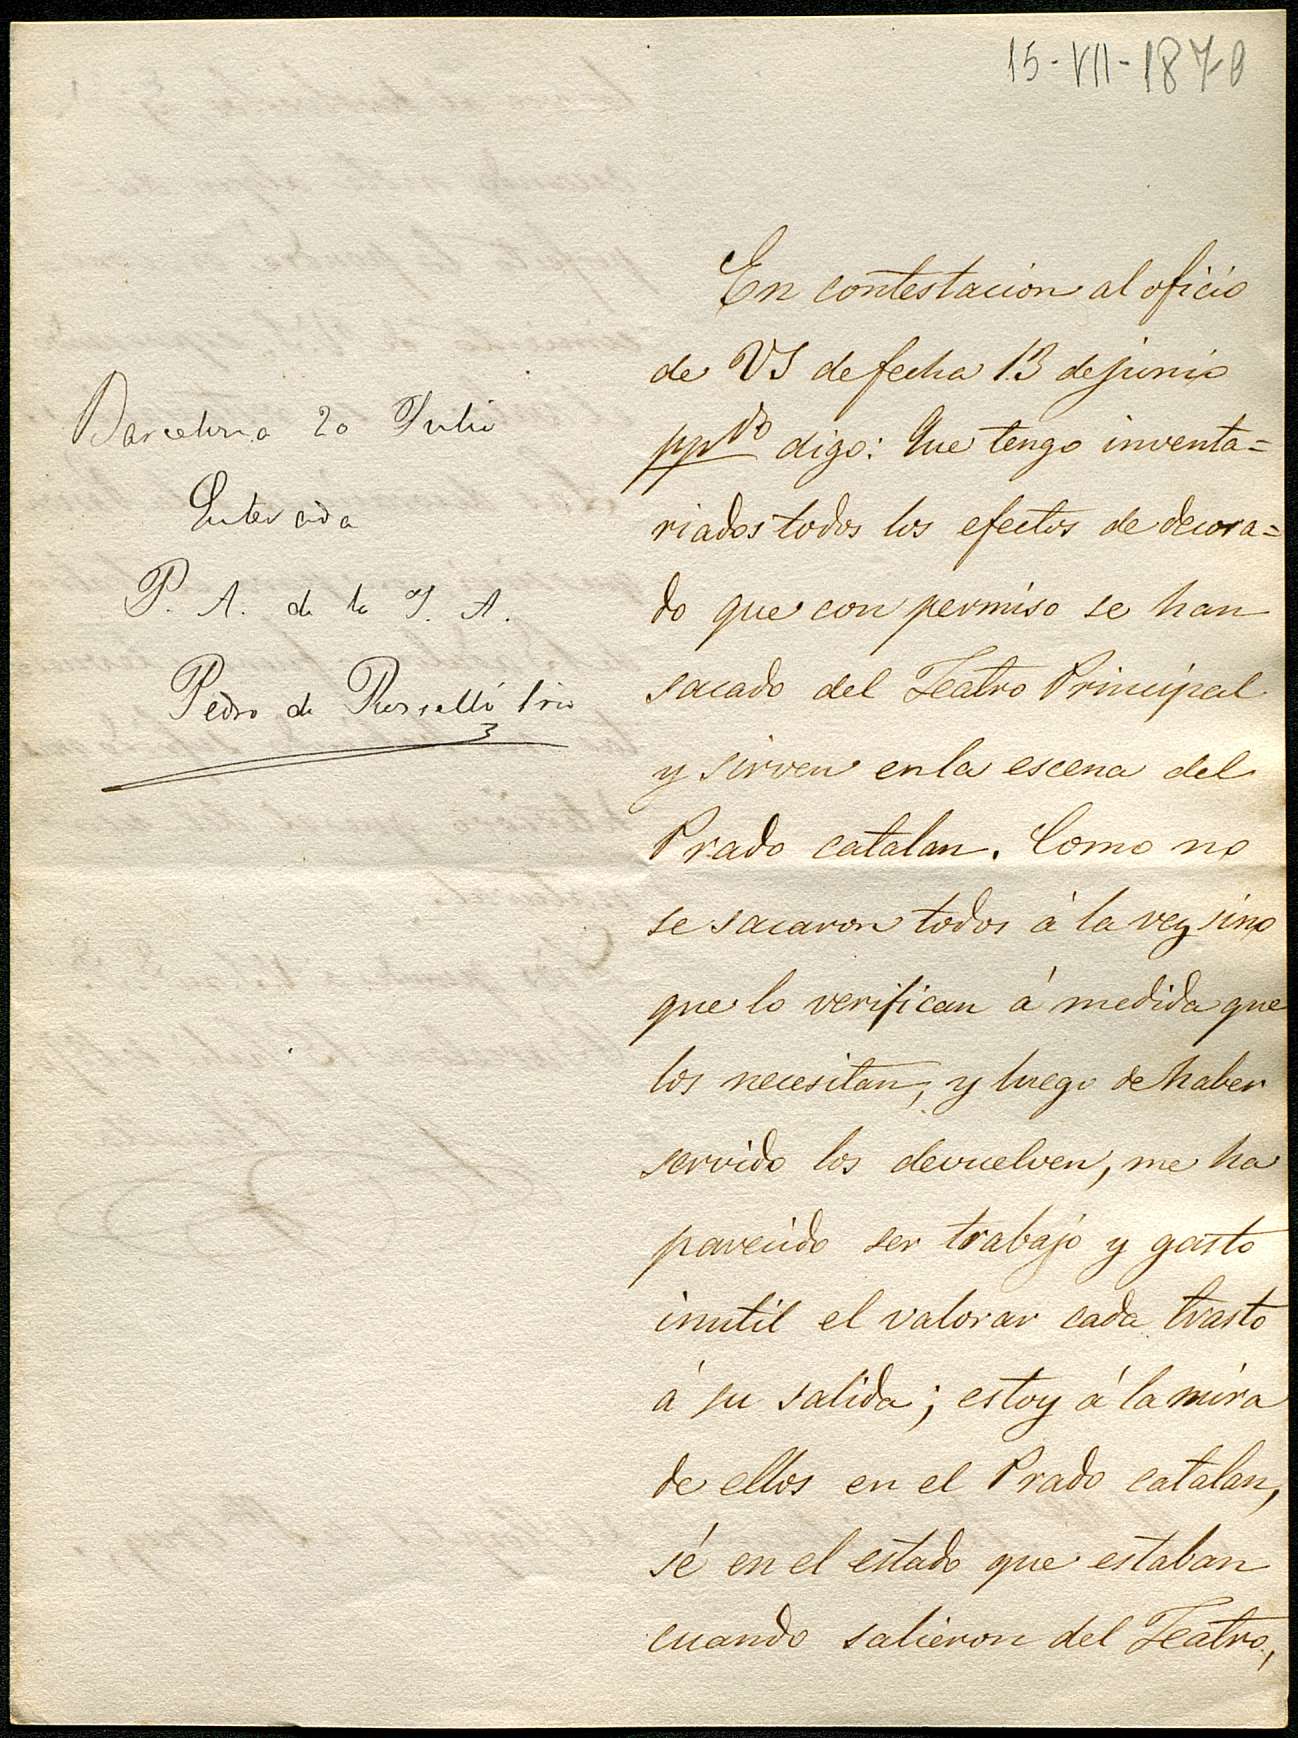 15-VII-1870
Barcelona 20 Julio
Enterada
P. A. de la J. A.
Pedro de Rosselló Srio
En contestacion al oficio
de VS de fecha 13 de junio
ppdo digo: Que tengo inventa=
riados todos los efectos de decora=
do que con permiso se han
sacado del Teatro Principal
y sirven en la escena del
Prado catalan. Como no
se sacaron todos á la vez sino
que lo verifican á medida que
los necesitan, y luego de haber
servido los devuelven, me ha
parecido ser trabajo y gasto
inutil el valorar cada trasto
á su salida; estoy á la mira
de ellos en el Prado catalan,
sé en el estado que estaban
cuando salieron del Teatro,